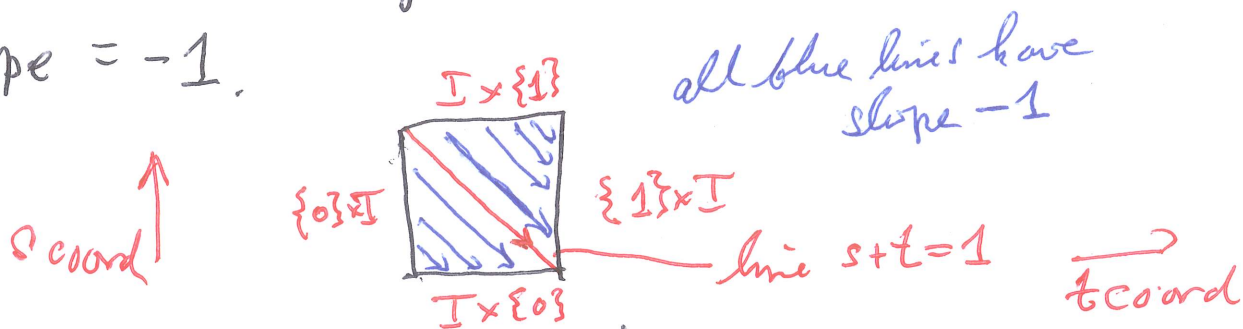 pe = -1.
all blue lines have
slope -1
I × {1}
{0}×I
{1}×I
s coord
line s+t=1
t coord
I × {0}